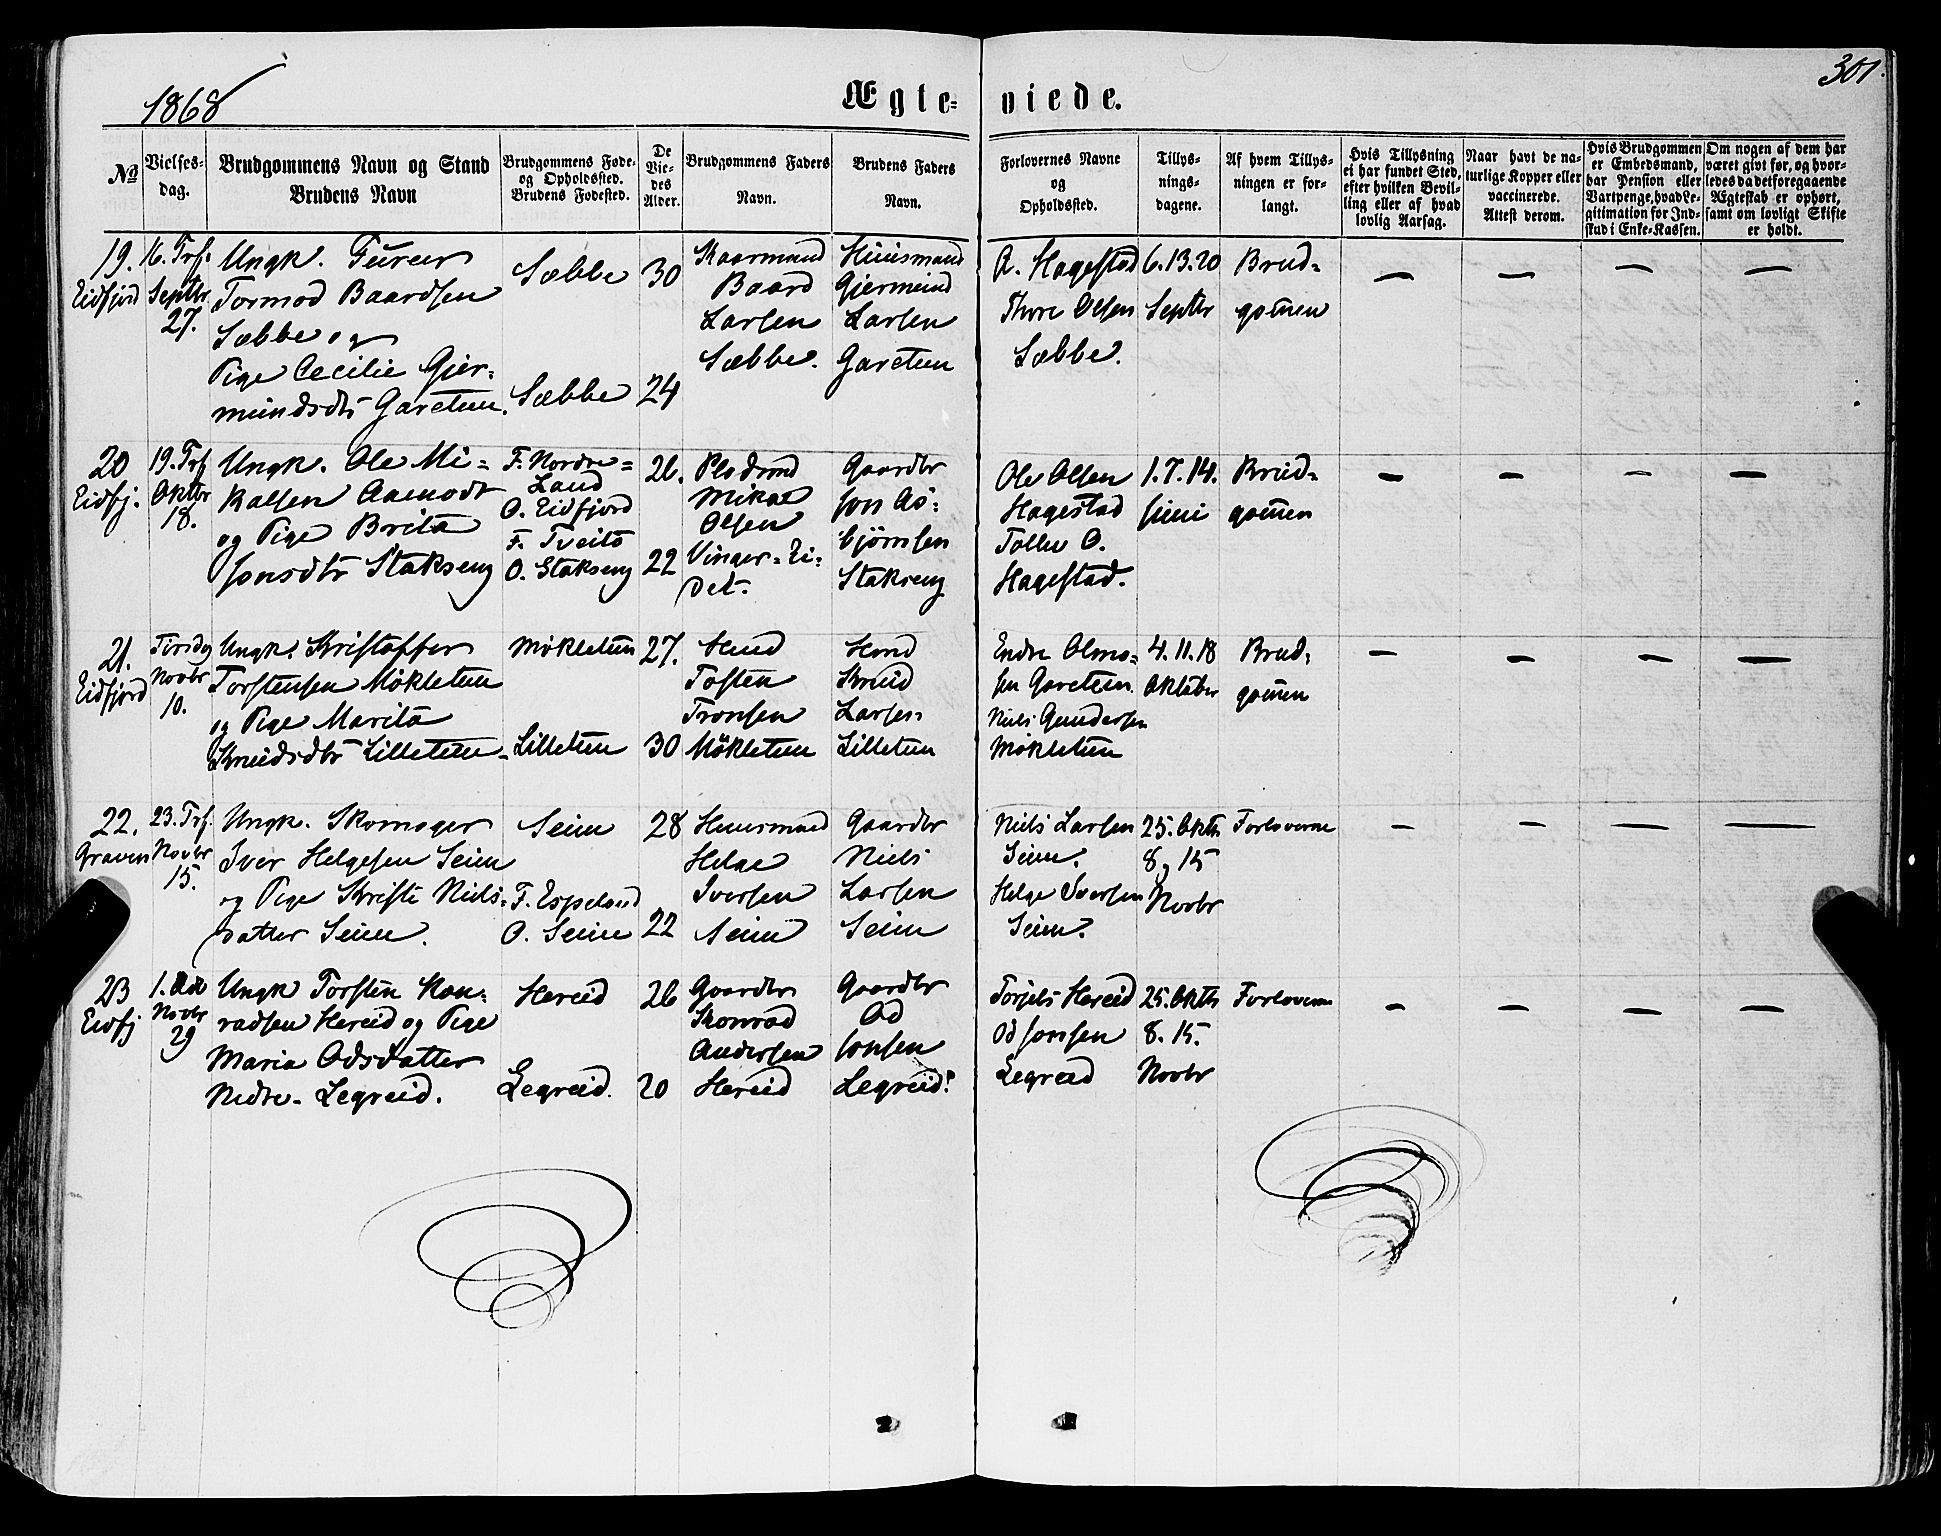 301.
1868
Ægte-
viede.
No
Vielses-
dag.
Brudgommens Navn og Stand
Brudens Navn
Brudgommens Føde-
og Opholdssted.
Brudens Fødested.
De
Vie-
des
Alder.
Brudgommens Faders
Navn.
Brudens Faders
Navn.
Forlovernes Navne
og
Opholdssted.
Tillys-
nings-
dagene.
Af hvem Tillys-
ningen er for-
langt.
Hvis Tillysning
ei har fundet Sted,
efter hvilken Bevil-
ling eller af hvad
lovlig Aarsag.
Naar havt de na-
turlige Kopper eller
vaccinerede.
Attest derom.
Hvis Brudgommen
er Embedsmand,
har Pension eller
Vartpenge, hvad Le-
gitimation for Ind-
skud i Enke-Kassen.
Om nogen af dem har
været givt før, og hvor-
ledes da det foregaaende
Ægteskab er ophørt,
samt om lovligt Skifte
er holdt.
19.
Eidfjord
16. Trf.
Septbr
27.
Ungk. Furer
Tormod Baardsen
Sæbbe og
Pige Cecilie Gjer-
mundsdtr Garetun.
Sæbbe
Sæbbe
30
24
Baard
Larsen
Sæbbe.
Huusmand
Gjermund
Larsen
Garetun
A. Hagestad
Thore Olsen
Sæbbe.
6. 13. 20
Septbr
Brud-
gomen
— — — —
20
Eidfj.
19. Trf
Oktbr
18.
Ungk. Ole Mi-
kalsen Aamodt
og Pige Brita
Jonsdtr Stakseng
F. Nordre-
Land
O. Eidfjord
F. Tveito
O. Stakseng
26.
22
Pladsmd
Mikael
Olsen
Vinger-Ei-
det.
Gaardbr
Jon As-
bjørnsen
Stakseng
Ole Olsen
Hagestad
Tollev O.
Hagestad.
1. 7. 14.
Juni
Brud-
gomen
— — — —
21.
Eidfjord
Tirsdag
Novbr
10.
Ungk. Kristoffer
Torstensen Mökletun
og Pige Marita
Knudsdtr Lilletun
Mökletun
Lilletun
27.
30
Husmd
Tosten
Tronsen
Mökletun
Husmd
Knud
Larsen
Lilletun
Endre Olmo-
sen Garetun.
Niels Gundersen
Mökletun
4. 11. 18
Oktober
Brud-
gomen
— — — —
22.
Graven
23. Trf.
Novbr
15.
Ungk. Skomager
Iver Helgesen Seim
og Pige Kristi Niels-
datter Seim.
Seim
F. Espeland
O. Seim
28
22
Huusmand
Helge
Iversen
Seim
Gaardbr
Niels
Larsen
Seim
Niels Larsen
Seim.
Helge Iversen
Seim.
25. Oktb
8, 15
Novbr
Forloverne
— — — —
23
Eidfj
1. Adv
Novbr
29
Ungk Torsten Kon-
radsen Hereid og Pige
Maria Odsdatter
Nedre-Legreid.
Hereid
Legreid.
26
20
Gaardbr
Konrad
Andersen
Hereid
Gaardbr
Od
Jonsen
Legreid.
Torjels Hereid
Od Jonsen
Legreid
25. Oktb
8. 15.
Novbr
Forloverne
— — — —